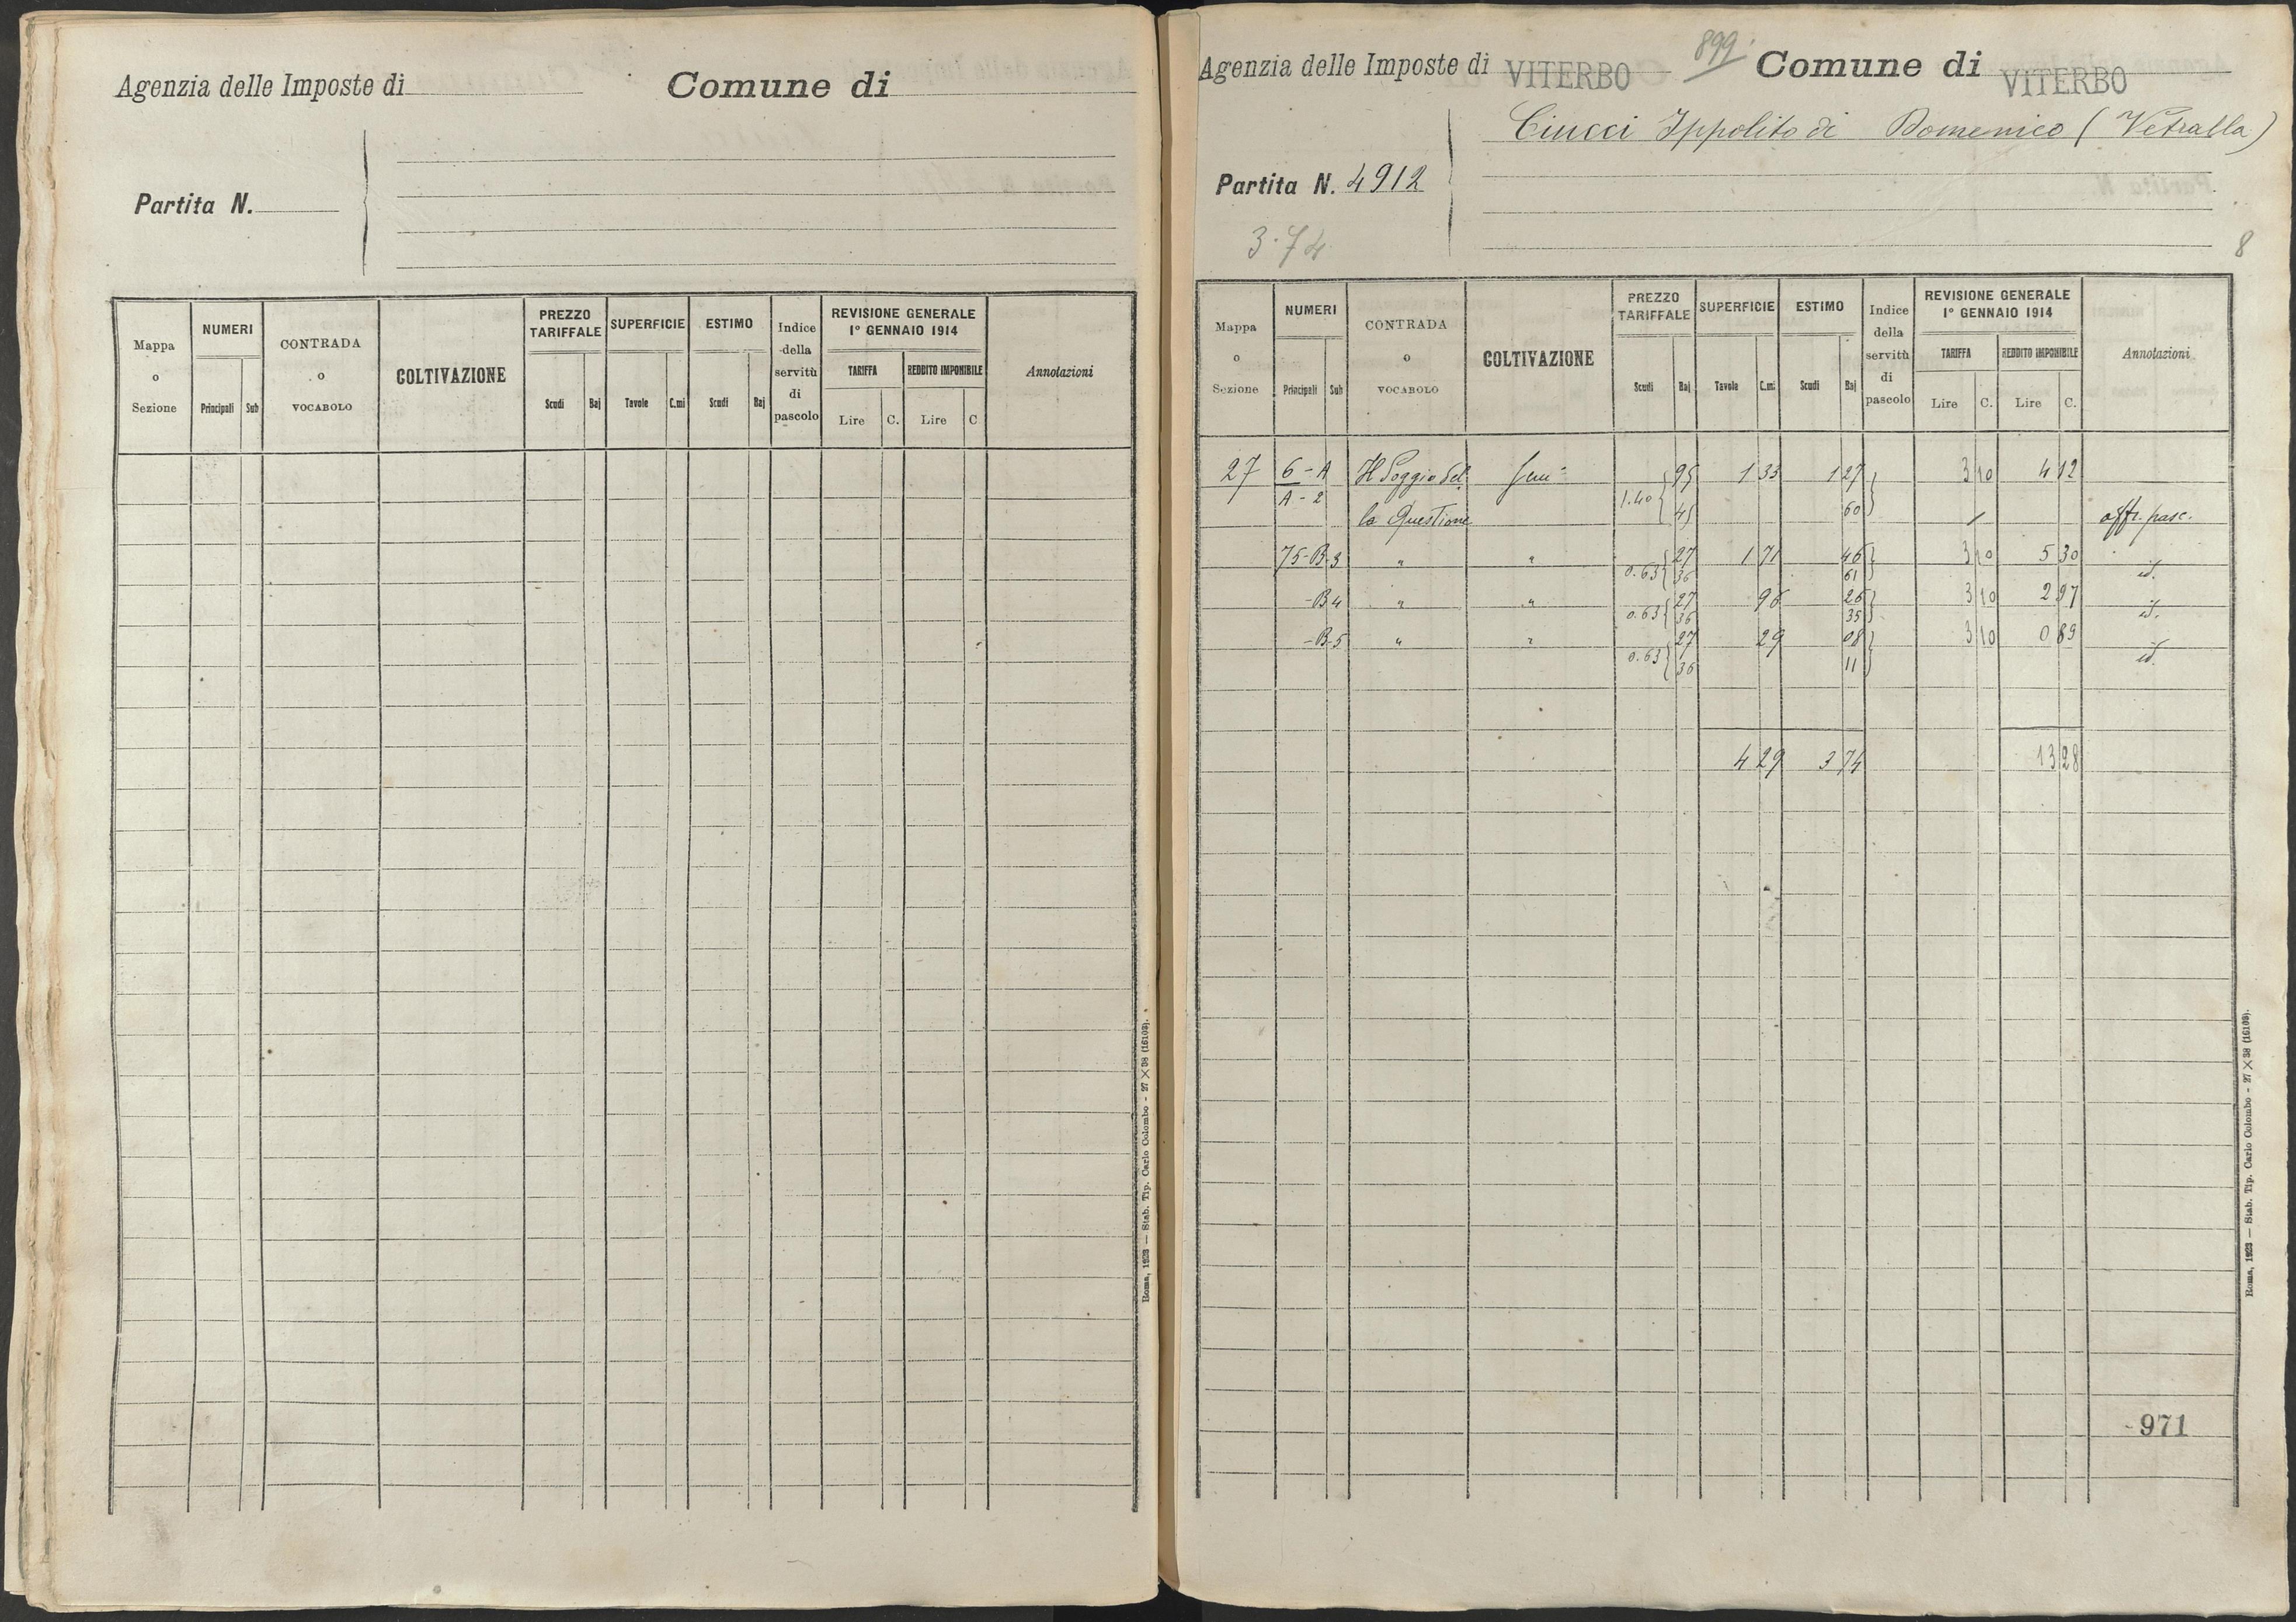 Agenzia delle Imposte di
Comune di
Partita N.
Mappa o Sezione
NUMERI
Principali Sub
CONTRADA o VOCABOLO
COLTIVAZIONE
PREZZO TARIFFALE
Scudi Baj
SUPERFICIE
Tavole C.mi
ESTIMO
Scudi Baj
Indice della servitù di pascolo
REVISIONE GENERALE
1° GENNAIO 1914
TARIFFA
Lire C.
REDDITO IMPONIBILE
Lire C
Annotazioni
Roma, 1923 — Stab. Tip. Carlo Colombo - 27 × 38 (16103).
899
Agenzia delle Imposte di VITERBO Comune di VITERBO
Ciucci Ippolito di Domenico (Vetralla)
Partita N. 4912
3.74
8
Mappa o Sezione
NUMERI
Principali Sub
CONTRADA o VOCABOLO
COLTIVAZIONE
PREZZO TARIFFALE
Scudi Baj
SUPERFICIE
Tavole C.mi
ESTIMO
Scudi Baj
Indice della servitù di pascolo
REVISIONE GENERALE
1° GENNAIO 1914
TARIFFA
Lire C.
REDDITO IMPONIBILE
Lire C.
Annotazioni
27 6-A Il Poggio del 95 1 33 1 27 3 10 4 12
A-2 la Questione 1.40 45 60 affr. pasc.
75-B-3 " " 27 1 71 46 3 10 5 30
0.63 36 61 id.
-B4 " " 27 96 26 3 10 2 97
0.63 36 35 id.
-B-5 " " 27 29 08 3 10 0 89
0.63 36 11 id.
4 29 3 74 13 28
971
Roma, 1923 — Stab. Tip. Carlo Colombo - 27 × 38 (16103).